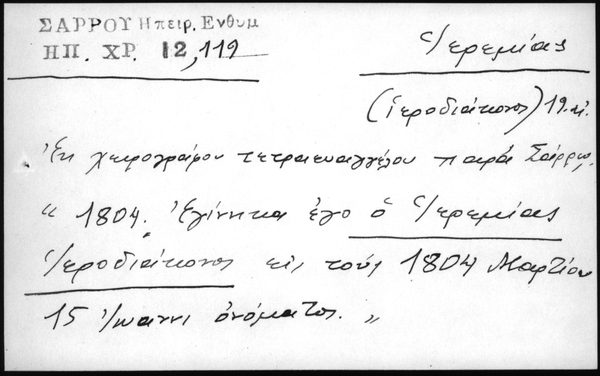 ΣΑΡΡΟΥ Ηπειρ. Ενθυμ
ΗΠ. ΧΡ. 12, 119
Ἱερεμίας
(ἱεροδιάκονος) 19 αἰ.
Ἐκ χειρογράφου τετραευαγγέλου παρὰ Σάρρῳ.
" 1804. Ἐγίνηκα ἐγὸ ὁ Ἱερεμίας
Ἱεροδιάκονος εἰς τοὺς 1804 Μαρτίου
15 Ἰωαννι ὀνόματος. "